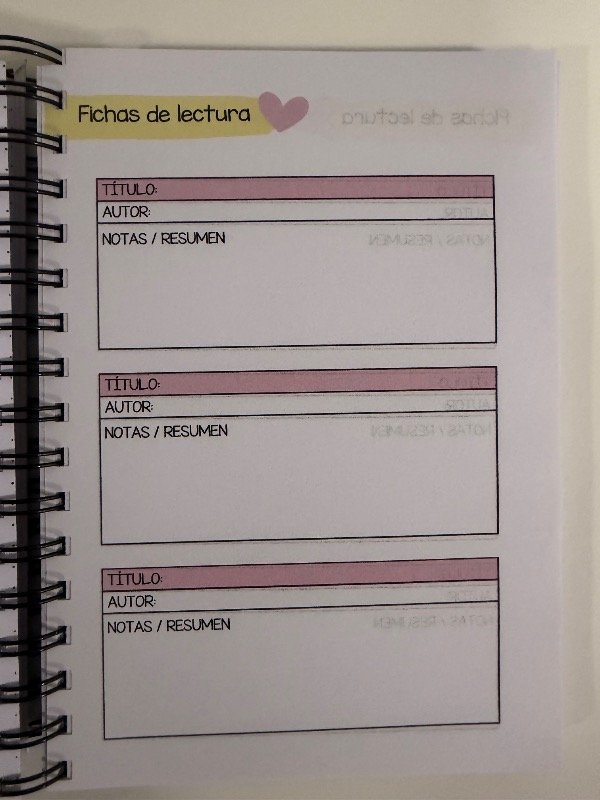 Fichas de lectura
TÍTULO:
AUTOR:
NOTAS / RESUMEN
TÍTULO:
AUTOR:
NOTAS / RESUMEN
TÍTULO:
AUTOR:
NOTAS / RESUMEN